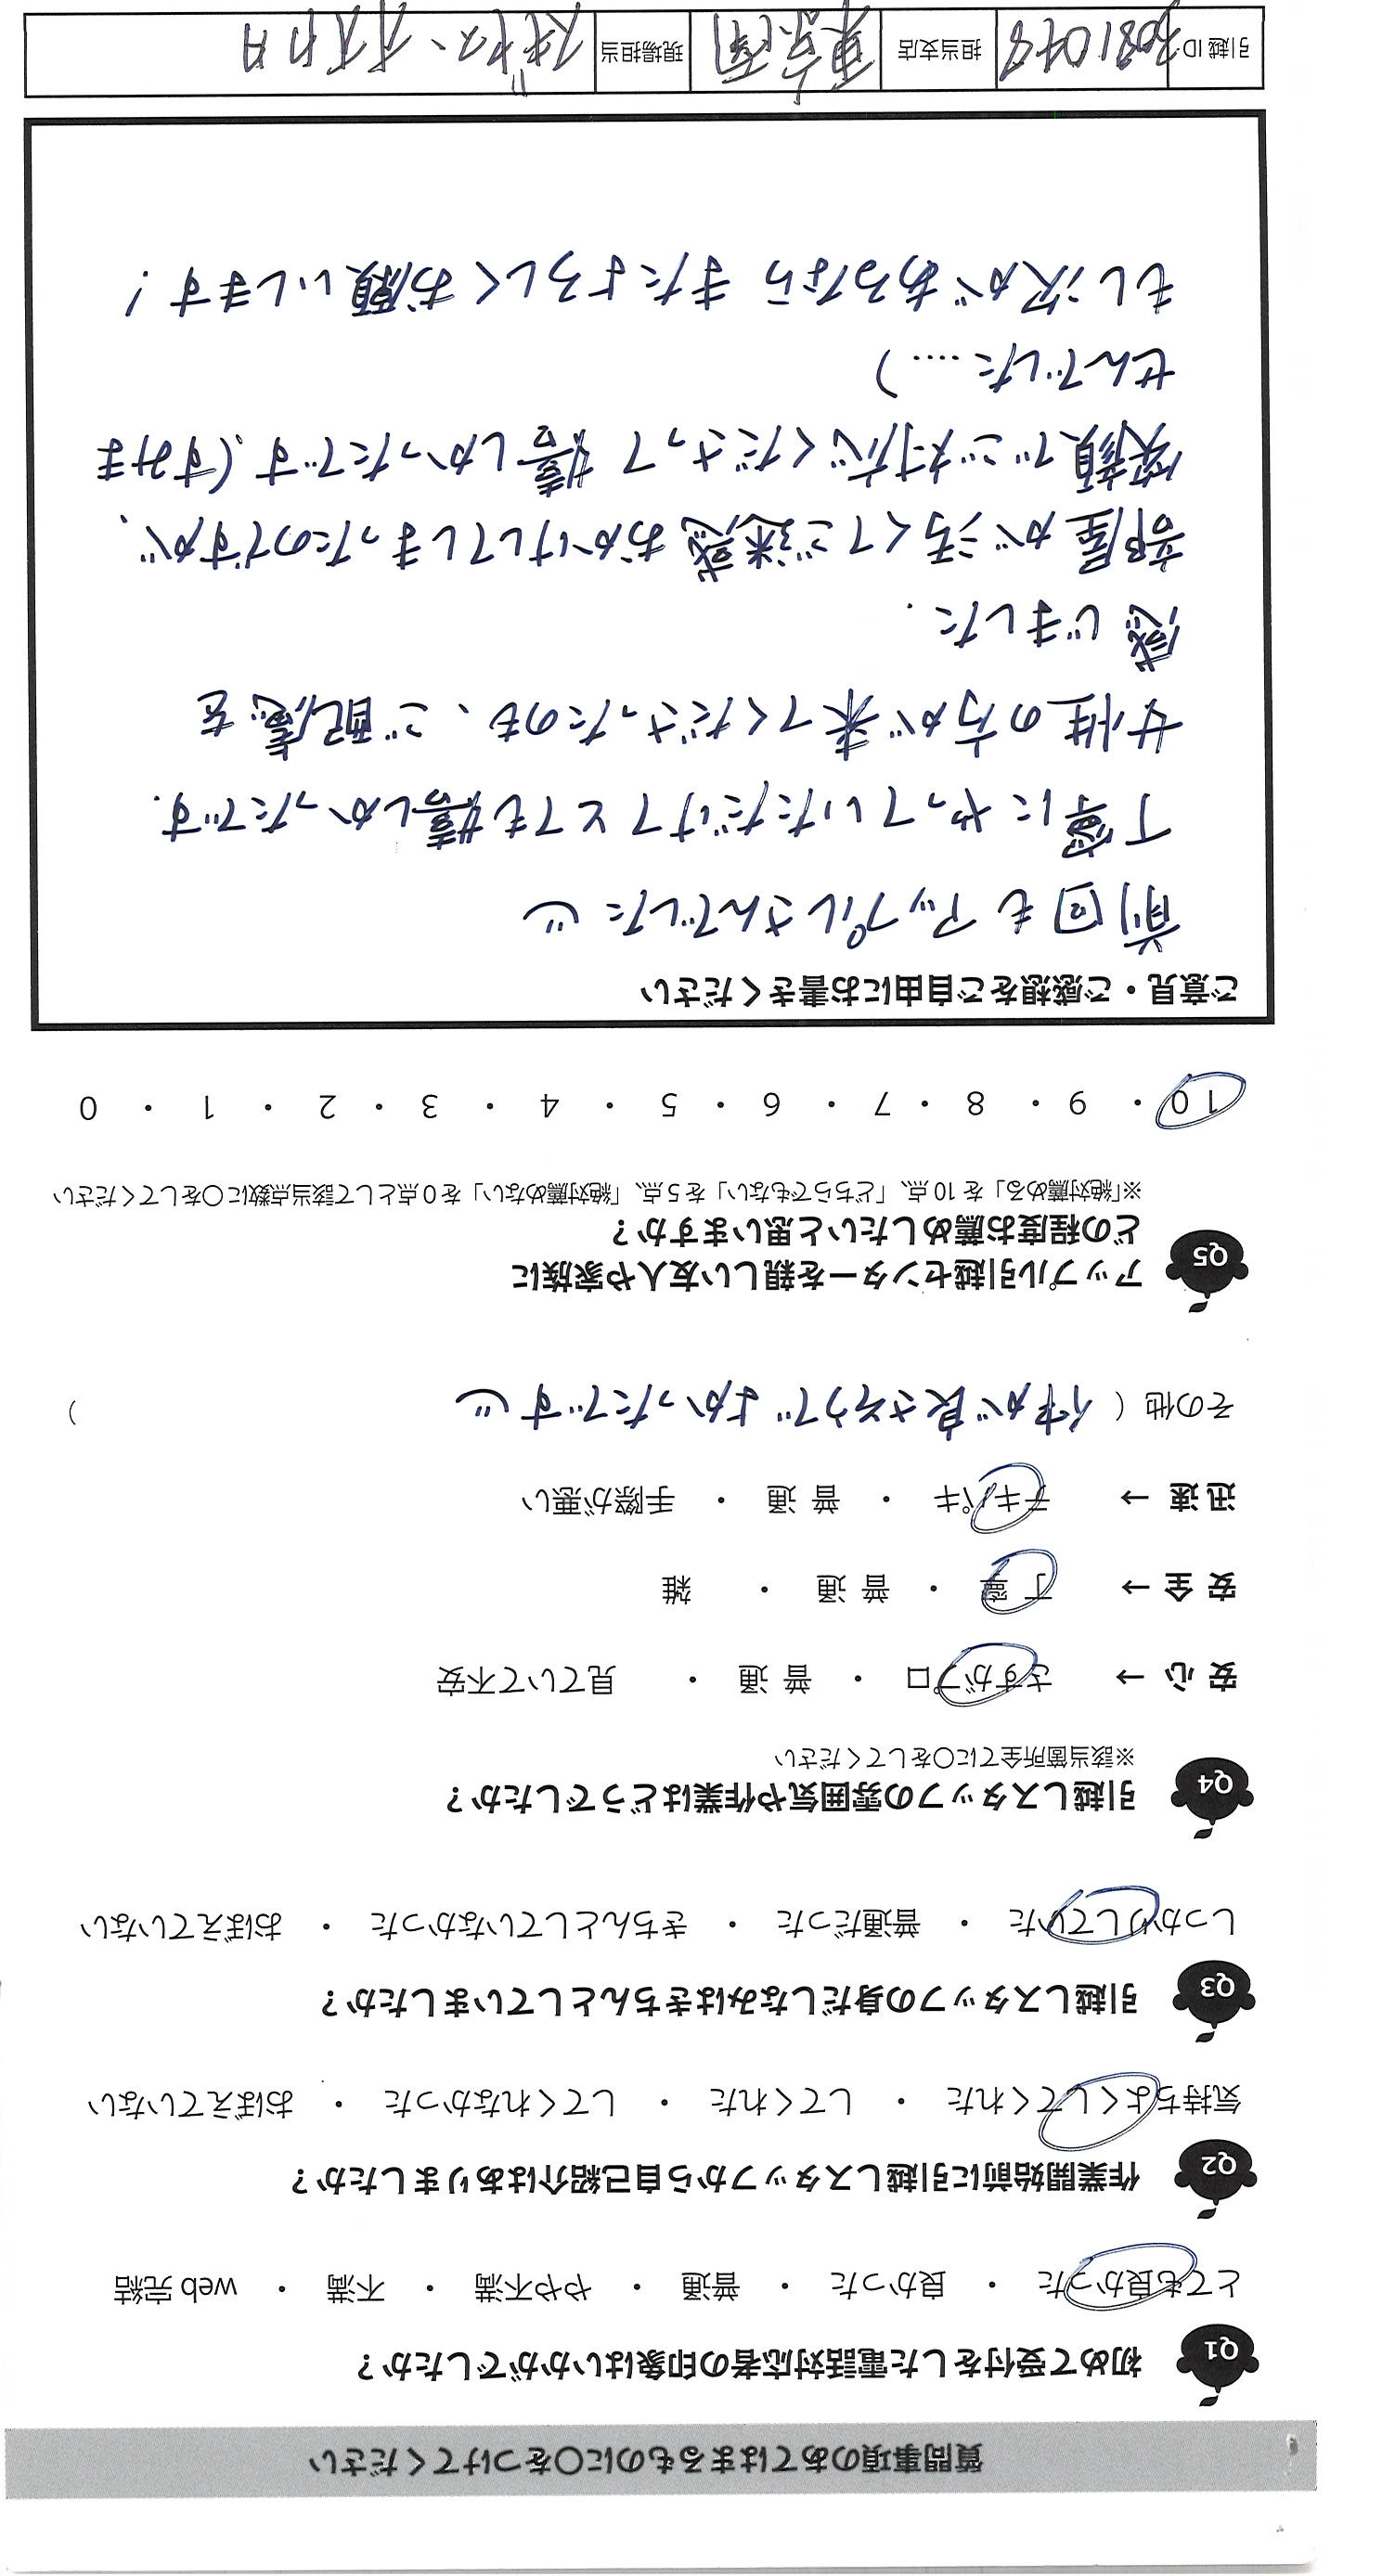 質問事項のあてはまるものに○をつけてください
Q1 初めて受付をした電話対応者の印象はいかがでしたか？
とても良かった ・ 良かった ・ 普通 ・ やや不満 ・ 不満 ・ web 完結
Q2 作業開始前に引越しスタッフから自己紹介はありましたか？
気持ちよくしてくれた ・ してくれた ・ してくれなかった ・ おぼえていない
Q3 引越しスタッフの身だしなみはきちんとしていましたか？
しっかりしていた ・ 普通だった ・ きちんとしていなかった ・ おぼえていない
Q4 引越しスタッフの雰囲気や作業はどうでしたか？
※該当箇所全てに○をしてください
安 心 → さすがプロ ・ 普 通 ・ 見ていて不安
安 全 → 丁 寧 ・ 普 通 ・ 雑
迅 速 → テキパキ ・ 普 通 ・ 手際が悪い
その他（ 仲が良さそうでよかったです ）
Q5 アップル引越センターを親しい友人や家族に
どの程度お薦めしたいと思いますか？
※「絶対薦める」を 10 点、「どちらでもない」を 5 点、「絶対薦めない」を 0 点として該当点数に○をしてください
10 ・ 9 ・ 8 ・ 7 ・ 6 ・ 5 ・ 4 ・ 3 ・ 2 ・ 1 ・ 0
ご意見・ご感想をご自由にお書きください
前回もアップルさんでした
丁寧にやっていただけてとても嬉しかったです.
女性の方が来てくださったのも、ご配慮を
感じました.
部屋が汚くてご迷惑おかけしてしまったのですが、
笑顔でご対応くださって嬉しかったです.(すみま
せんでした....)
もし次があるならまたよろしくお願いします!
引越 ID 担当支店 東京南 現場担当